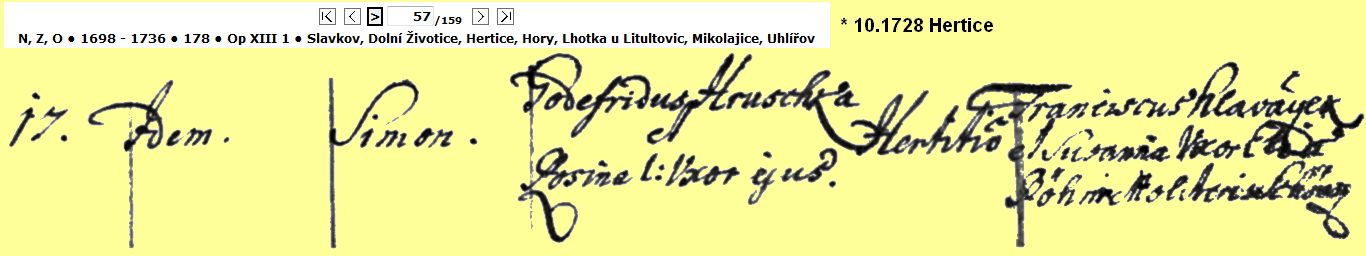 57 /159
N, Z, O ● 1698 - 1736 ● 178 ● Op XIII 1 ● Slavkov, Dolní Životice, Hertice, Hory, Lhotka u Litultovic, Mikolajice, Uhlířov
* 10.1728 Hertice
17. Idem. Simon. Godefridus Hruschka
et
Rosina l: Uxor ejus.
Hertitiō
Franciscus Hlaváçek
et Susanna Uxor
Böhm